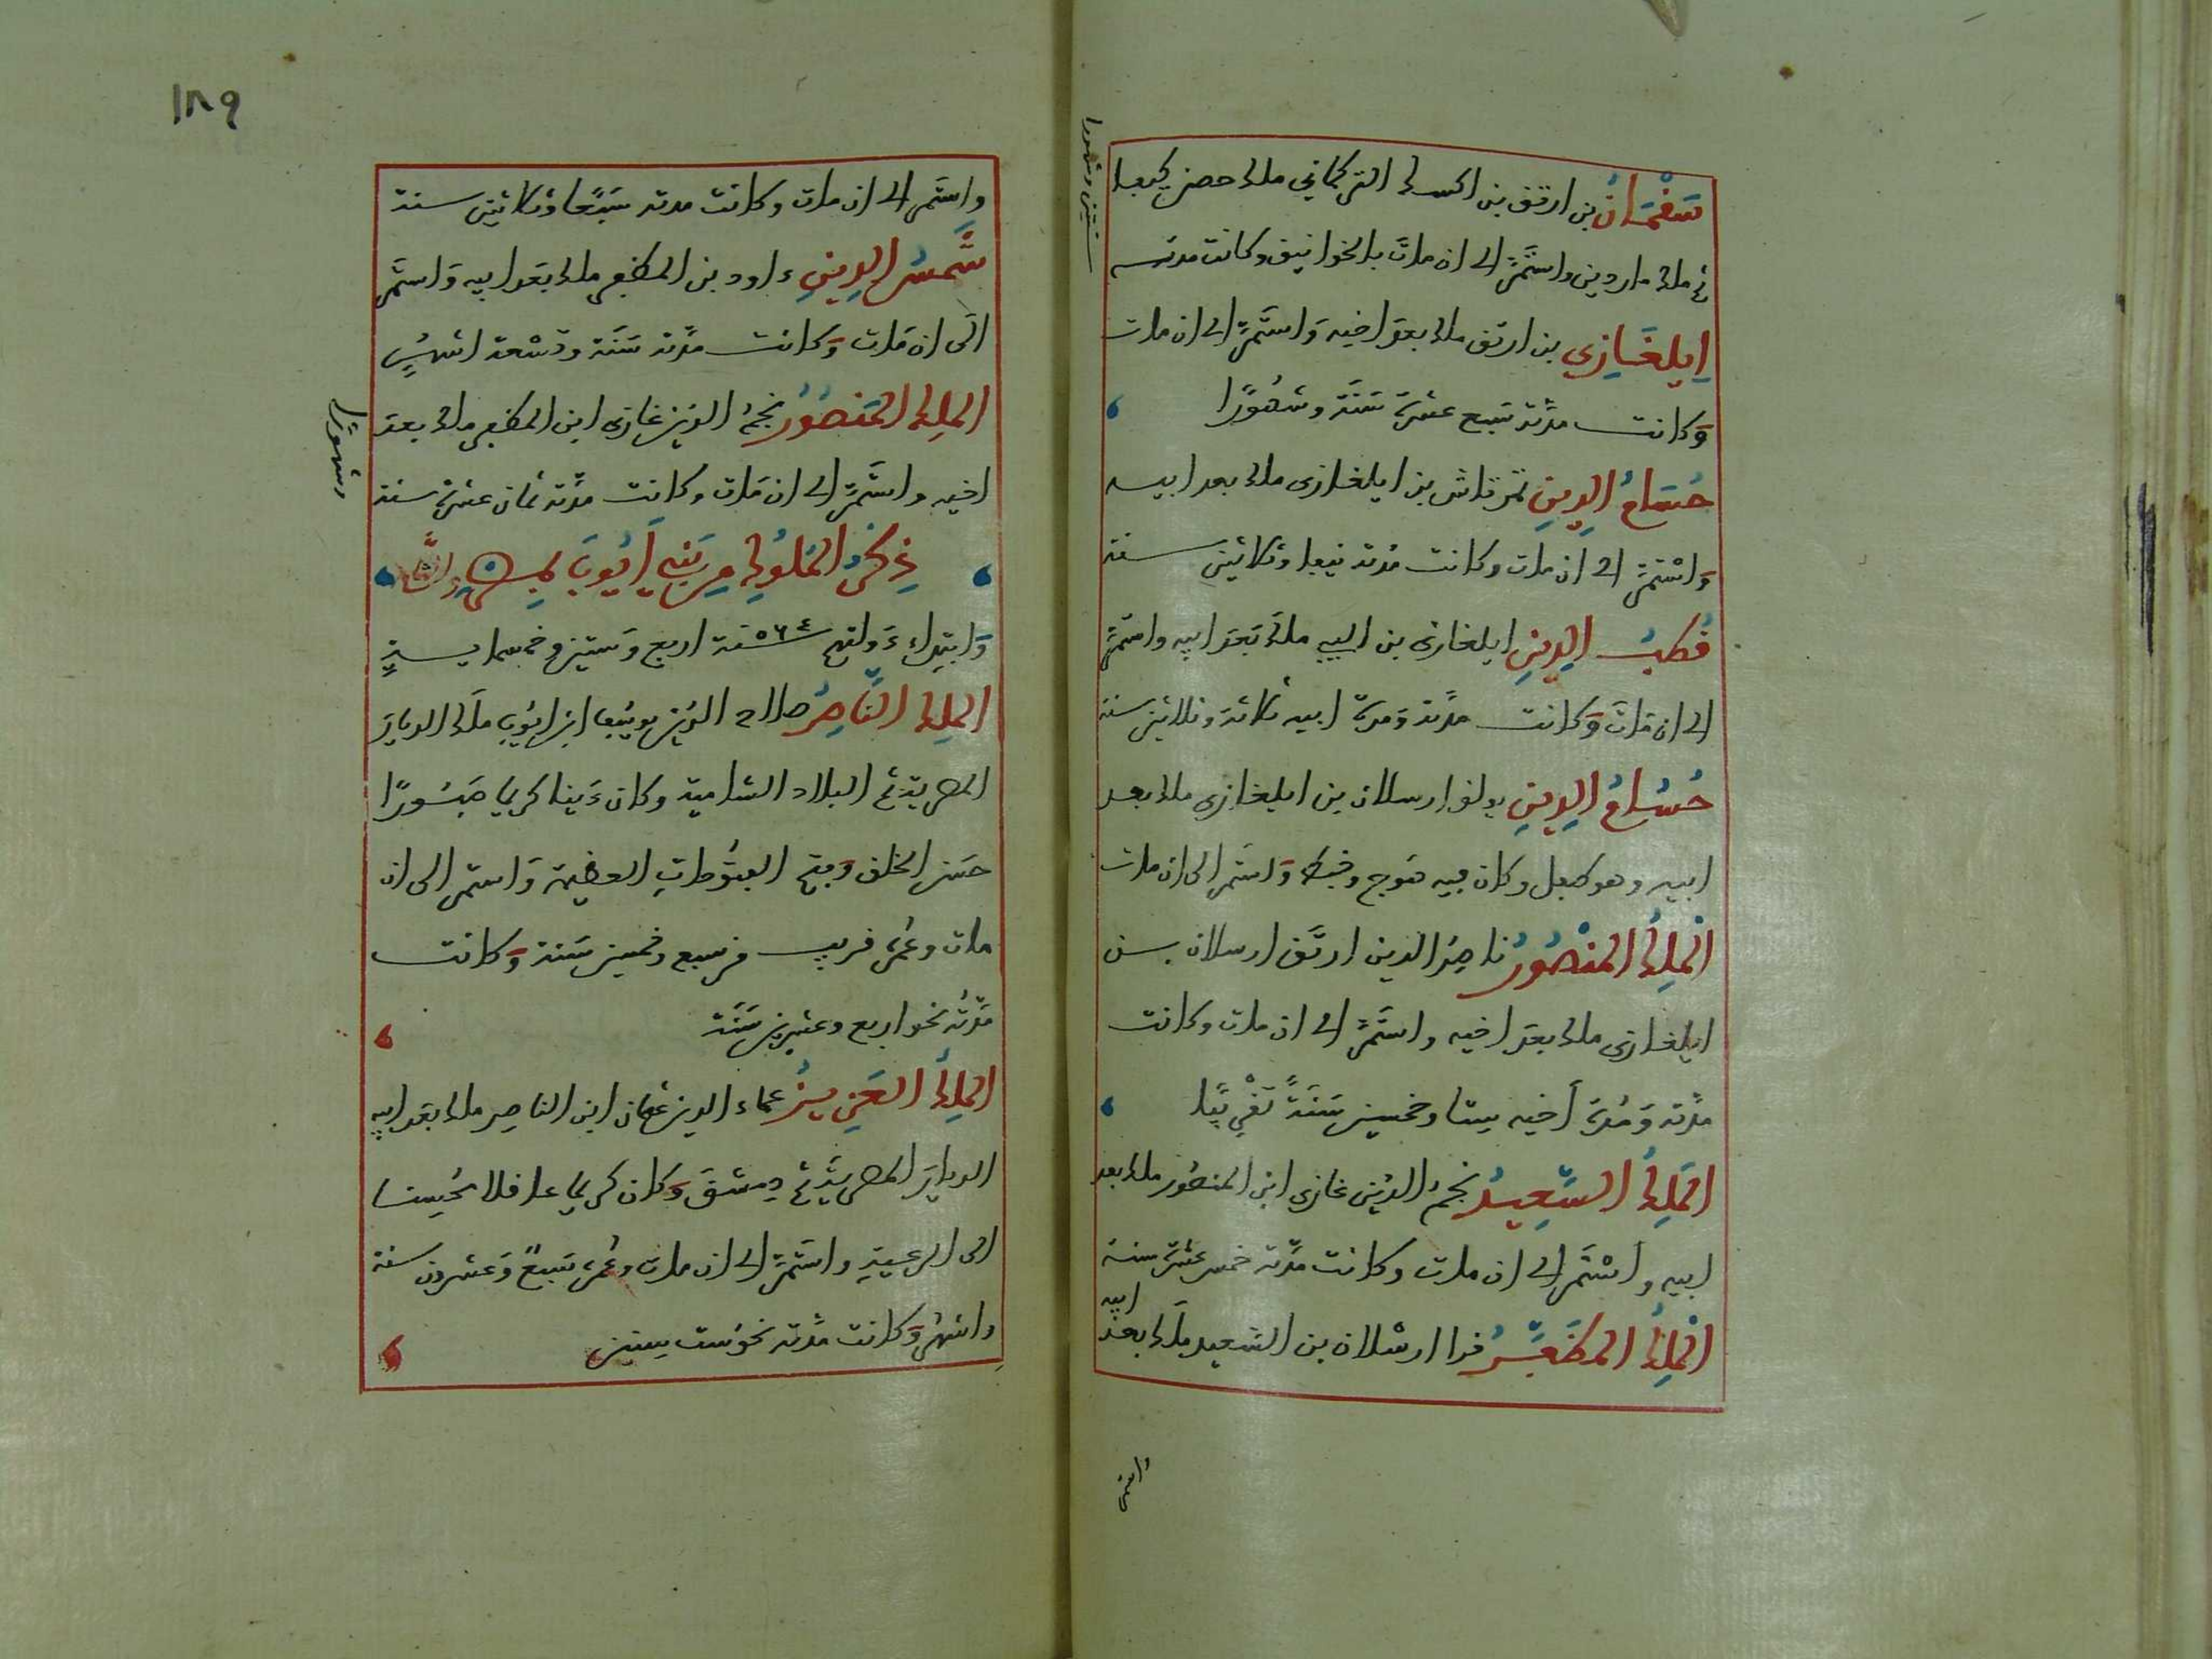 سَقْمَانُ بن ارتق بن اكسك التركماني ملك حصن كيفا
ثم ملك ماردين واستَمَرَّ الى ان ماتَ بالخوانيق وكانت مدته
سنتين وشهورا
اِيلغَازِي بن ارتق ملك بعدَ اخيه وَاستَمَرَّ الى ان مات
وَكانت مدّته سَبع عشرَة سَنَة وشهُورًا
حُسَامُ الدِينِ تمرتاش بن ايلغازي ملك بعد ابيه
وَاسْتمَرَّ الى ان مات وكانت مُدته نيفا وثلاثين سنة
قُطبُ الدِينِ ايلغازي بن البي ملك بَعدَ ابيه واستَمَرَّ
الى ان مَاتَ وَكانت مدَّته وَمدة ابيه ثلاثة وثلاثين سنة
حُسَامُ الدِينِ بولق ارسلان بن ايلغازي ملك بعد
ابيه وهو طفل وكان فيه هَوج وخبط وَاستَمر الى ان مات
المَلِكُ المنْصُورُ ناصِرُ الدين ارتَق ارسلان بن
ايلغازي ملك بعدَ اخيه واستَمَرَّ الى ان مات وكانت
مدَّته وَمُدة أخيه ستا وخمسين سَنَةً تَقْرِيبًا
المَلِكُ السَّعِيدُ نجمُ الدّين غازي ابن المنصُور ملك بعد
ابيه واسْتَمر الى ان مات وكانت مدّته خمس عشرة سنة
المَلِكُ المظَفَّرُ قرا ارسْلان بن السَّعيد ملَك بعدَ ابيه
واستمر
١٨٩
واستَمر الى ان مات وكانت مدته سَبعًا وثلاثين سنة
شَمسُ الدِينِ داود بن المظفر ملك بعَد ابيه وَاستَمَر
الَى ان مَات وَكانت مدَّته سَنَة وتسْعة اشهُرٍ
المَلِكُ المَنصُورُ نجمُ الدين غازي ابن المظفر ملك بعدَ
اخيه واستَمَرَّ الى ان مَات وكانت مدَّته ثمان عشرة سنة
وشهورًا
ذِكرُ المُلوُكِ مِن بَنِي أَيُّوبَ بِمِصْرَ والشَّام
وَابتِداء دَولتهم ٥٦٤ سَنة اربع وَستين وخمسمايةٍ
المَلِك النَّاصِرُ صلاح الدين يوسُف ابن ايُوب ملَك الديار
المصرية ثم البلاد الشامية وكان دَينا كريما جَسُورًا
حَسَن الخلق وفتح الفتُوحاتِ العظيمة وَاستمر الى ان
مات وعُمره قريب من سبع وخمسين سَنة وَكانت
مدَّتُه نحو اربع وعشرين سَنَة
المَلِكُ العَزِيزُ عماد الدين عثمان ابن الناصر ملك بعَد ابيه
الديارَ المصريَّة ثم دِمشقَ وَكان كريما عاقلا مُحِسنا
الى الرعيةِ واستَمَرَّ الى ان مات وعُمره سَبعٌ وَعشرون سنة
واشهُر وَكانت مدَّته نحو ست سِنين